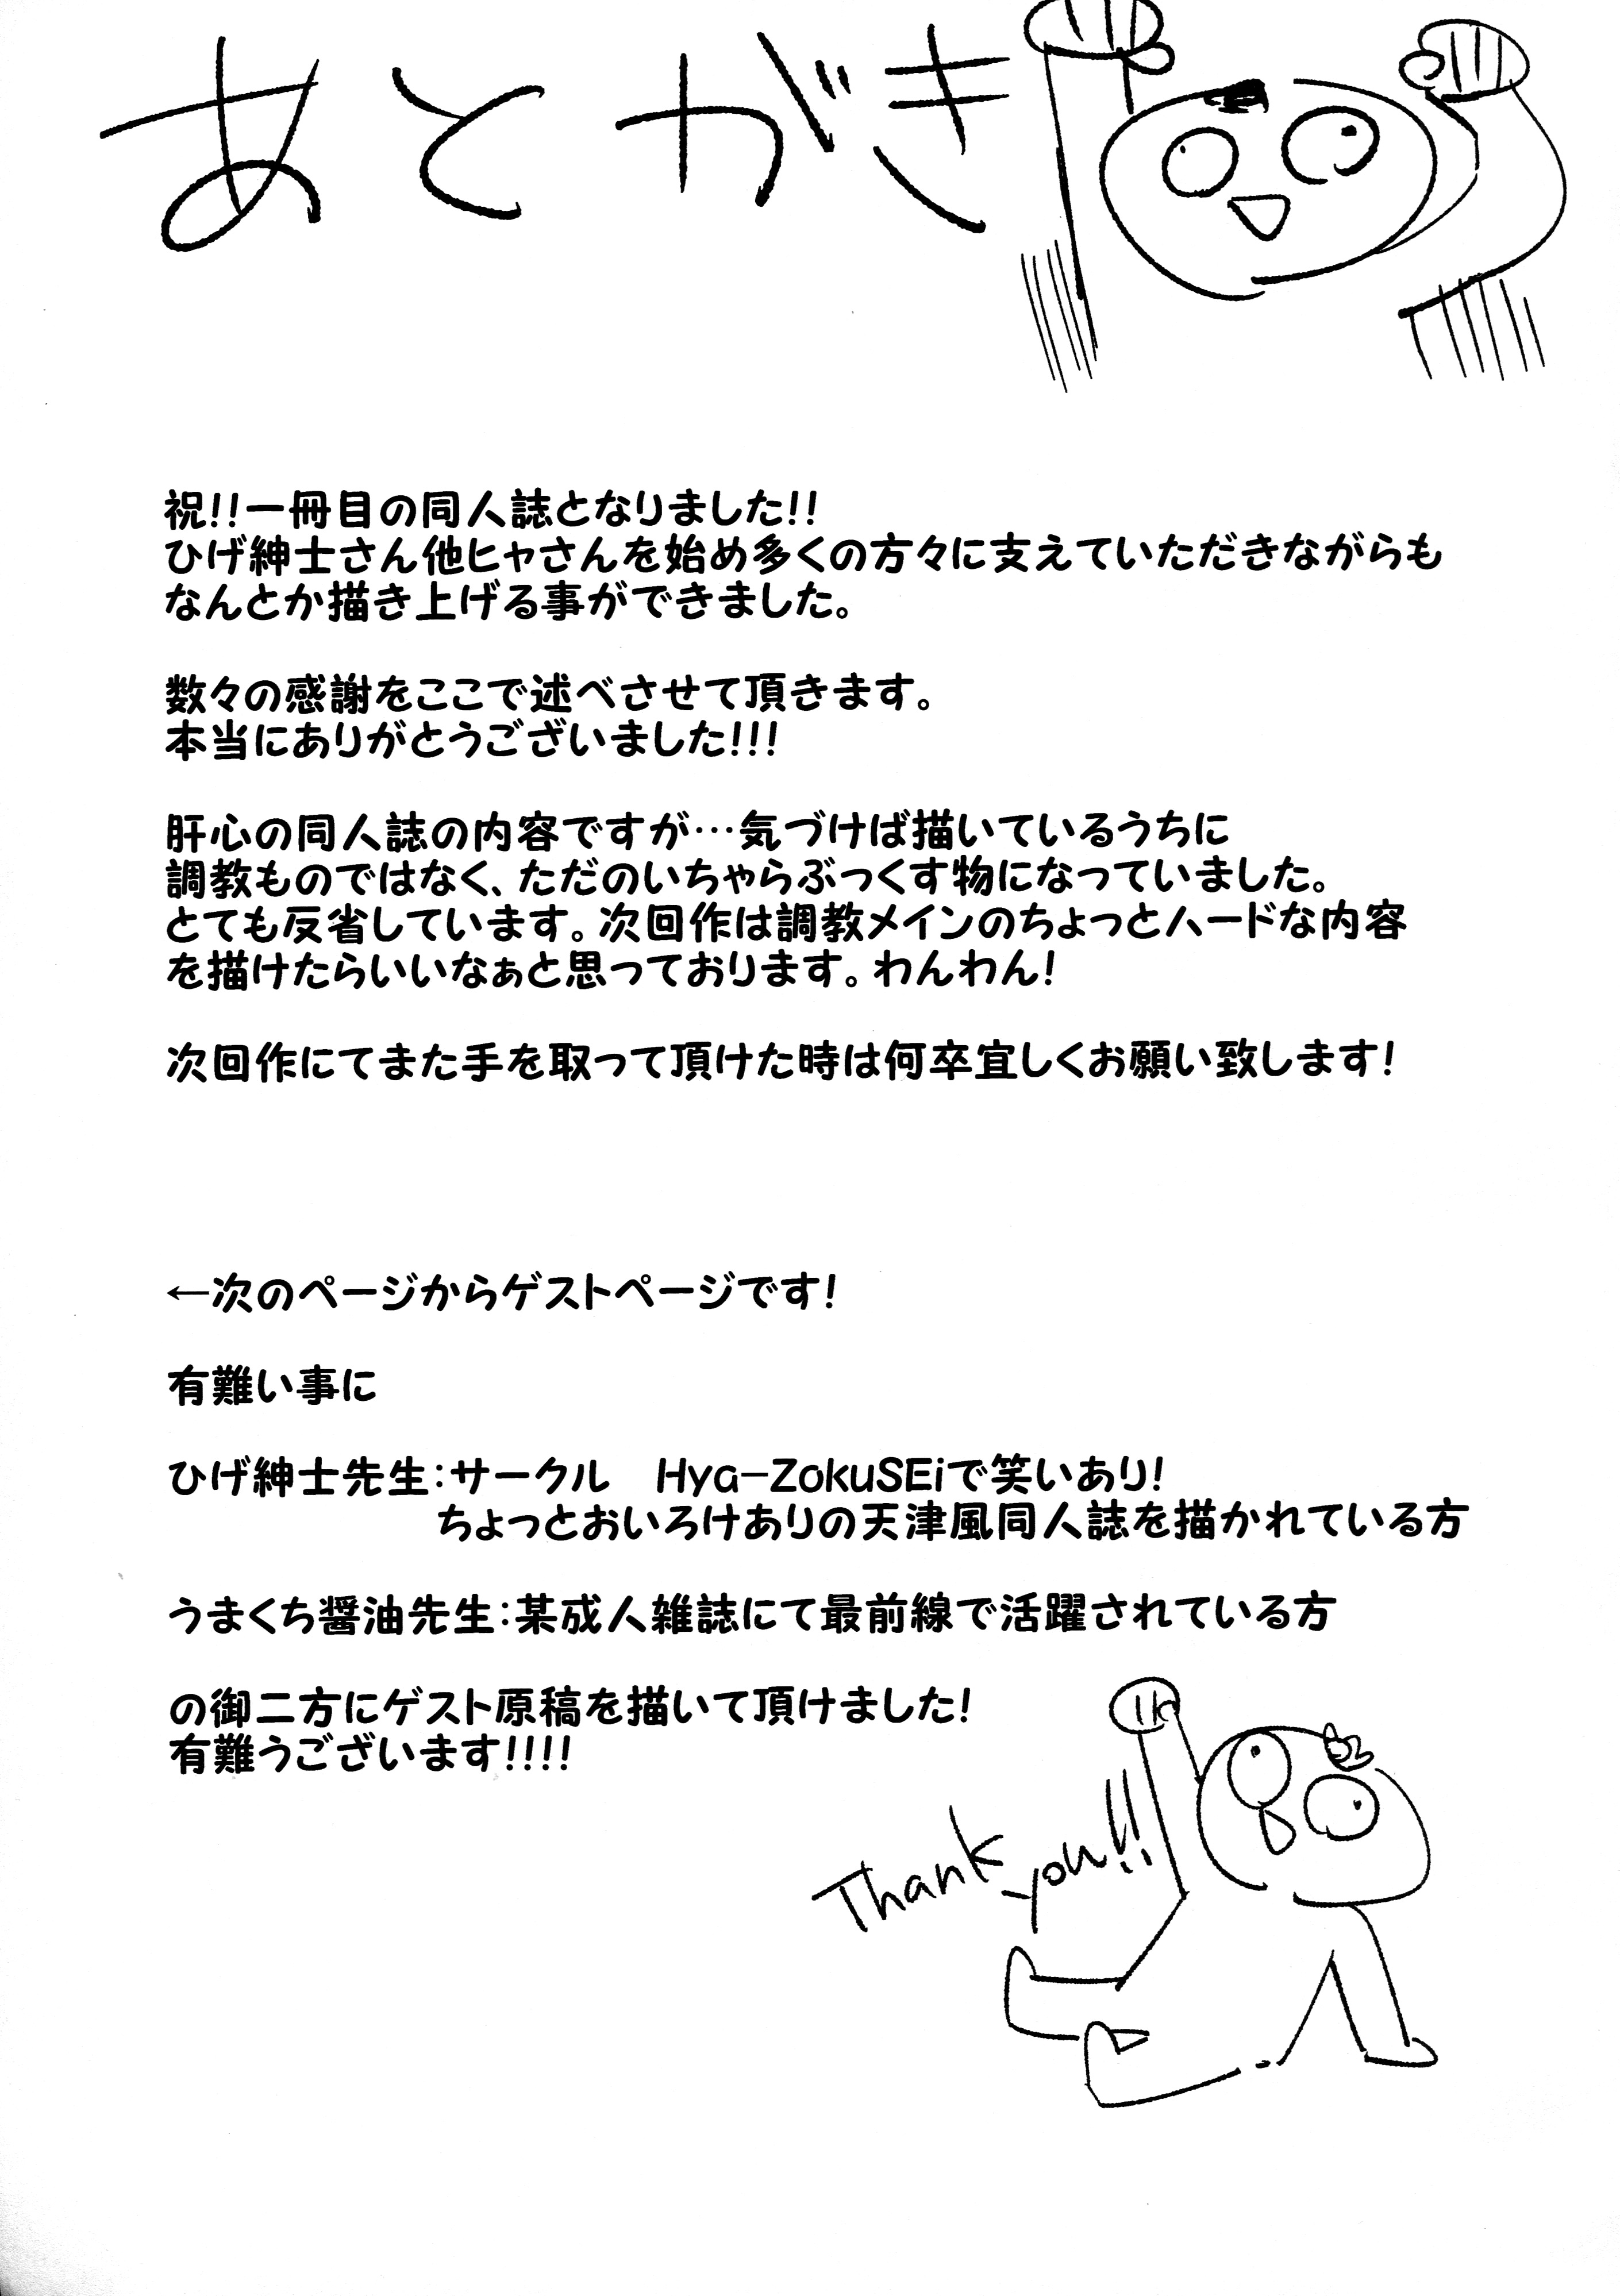 あとがき
祝!!一冊目の同人誌となりました!!
ひげ紳士さん他ヒャさんを始め多くの方々に支えていただきながらも
なんとか描き上げる事ができました。
数々の感謝をここで述べさせて頂きます。
本当にありがとうございました!!!
肝心の同人誌の内容ですが…気づけば描いているうちに
調教ものではなく、ただのいちゃらぶっくす物になっていました。
とても反省しています。次回作は調教メインのちょっとハードな内容
を描けたらいいなぁと思っております。わんわん!
次回作にてまた手を取って頂けた時は何卒宜しくお願い致します!
←次のページからゲストページです!
有難い事に
ひげ紳士先生:サークル　Hya-ZokuSEiで笑いあり!
ちょっとおいろけありの天津風同人誌を描かれている方
うまくち醤油先生:某成人雑誌にて最前線で活躍されている方
の御二方にゲスト原稿を描いて頂けました!
有難うございます!!!!
Thank
you!!